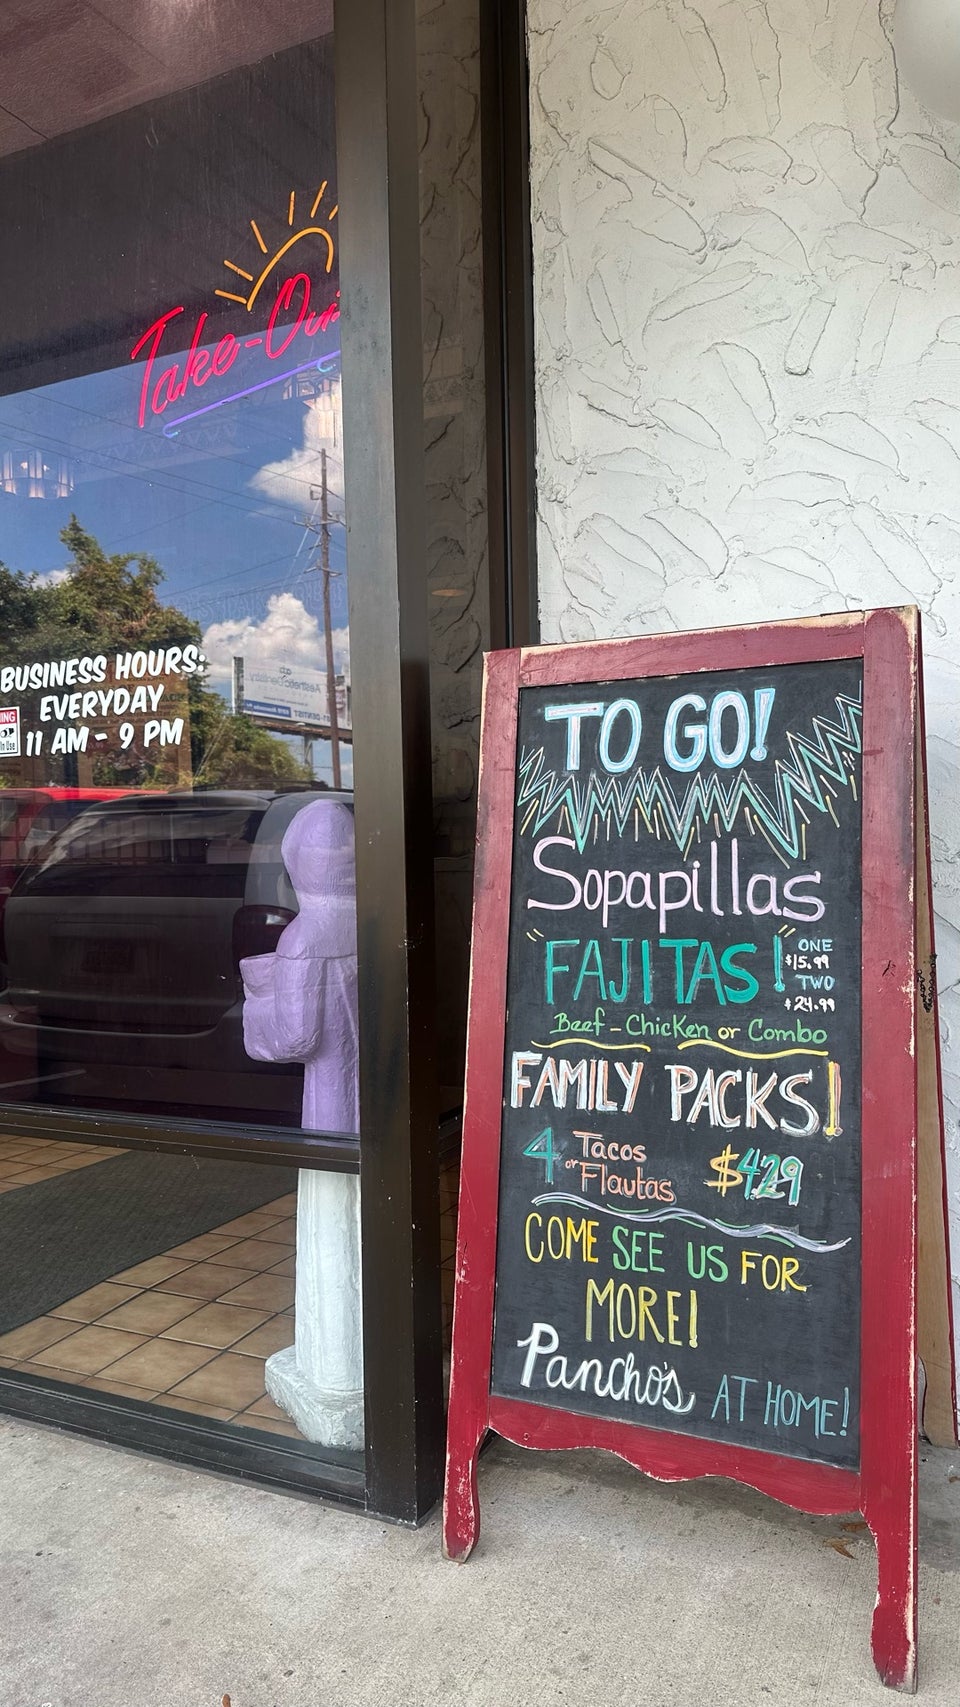 Take-Out
BUSINESS HOURS:
EVERYDAY
11 AM - 9 PM
ING
In Use
Aesthetic Dentistry
TO GO!
Sopapillas
"FAJITAS!"
ONE
$15.99
TWO
$24.99
Beef - Chicken or Combo
FAMILY PACKS!
4 Tacos
or Flautas
$4.29
COME SEE US FOR
MORE!
Pancho's AT HOME!